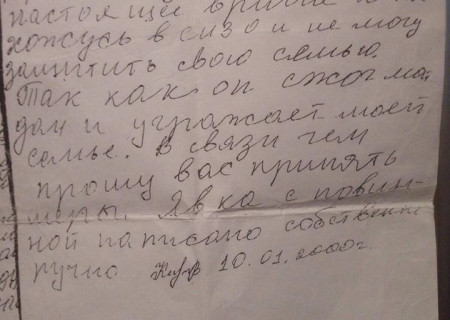 настоящее время я на
хожусь в сизо и не могу
защитить свою семью.
Так как он сжог ма
дан и угражает моей
семье. В связи чем
прошу вас принять
меры. Явка с повин-
ной написано собственно
ручно 10.01.2000г.